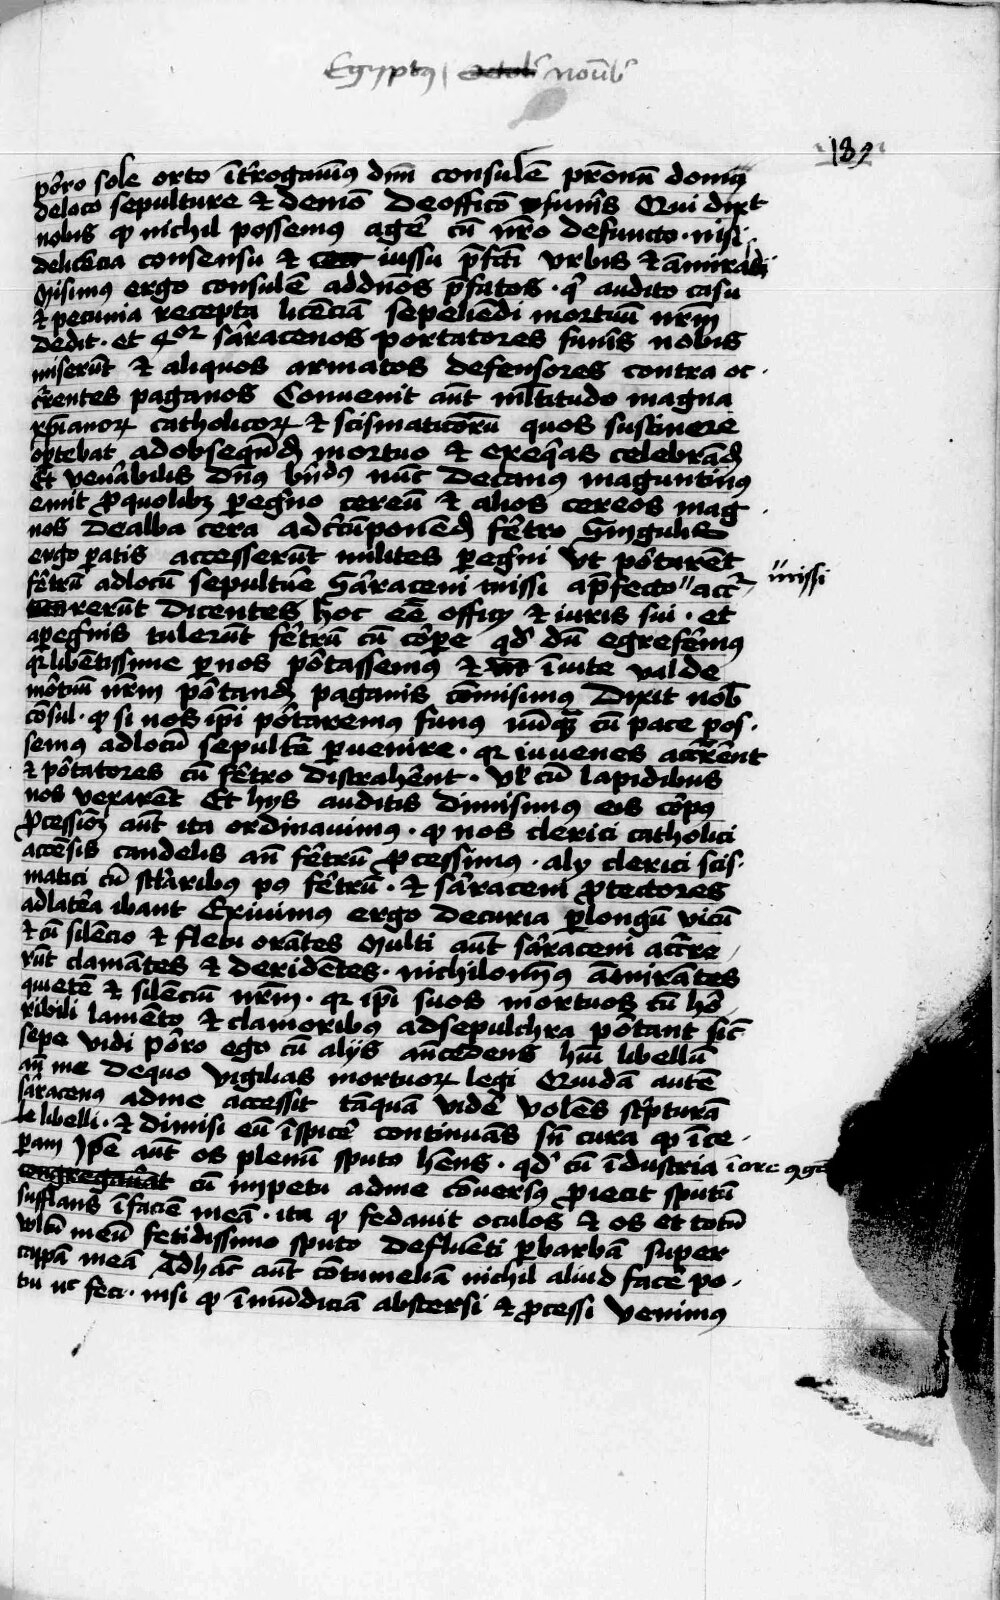 Egyptus / Octobris novembris
182
porro sole orto īt'rogavimus dnm̄ consulē pr̄onum domus
de loco sepulture et de modo De officio funeris Qui dixit
nobis qd nichil possemus agere cū nr̄o defuncto · nisi
de licētia consensu et iussu p̄fecti urbis et amiraldi
Misimus ergo consulē ad dnōs p̄fatos · qi audito casu
et pecunia recepta licēciam sepeliēdi mortuū nr̄m
dedit · et 4or sāracenos portatores funeris nobis
miserūt et aliquos armatos defensores contra oc
c'rentes paganos Convenit aūt mltitudo magna
xp̄ianorum catholicorum et scismaticorū quos sustinere
optebat ad obsequēdum mortuo et exequias celebrādum
Et venērabilis dn̄s bn̄dus nūc Decanus maguntinus
emit pro quolibet pegrino cereū et alios cereos mag
nos de alba cera ad circūponēdum fēretro Singulis
ergo paratis accesserūt milites pegrini ut portarēt
fēretrū ad locū sepulturē Sāraceni missi a p̄fecto " accur
rerūt dicentes hoc eē officij et iuris sui · et
"missi
a pegrinis tulerūt fēretrū cū corpe qd dū egre ferimus
qr libētissime per nos portassemus et īvite valde
mortuū nr̄m portandum paganis cōmisimus Dixit nob
cōsul · qd si nos ip̄i portaremus funus nūquam cū pace pos
semus ad locū sepulturē pervenire · qr iuvenes accurrerēt
et portatores cū fēretro distraherēt · vel cū lapidibus
nos vexarēt Et hijs auditis dimisimus eis corpus
Processionem aūt ita ordinavimus · qd nos clerici catholici
accēsis candelis an̄ fēretrū processimus · alij clerici scis
matici cū seclaribus pos fēretrū · et sāraceni protectores
ad latera ibant Exivimus ergo de curia per longū vicū
et cū silēcio et fletu orātes Multi aūt sāraceni accurre
rūt clamātes et deridētes · nichilominus amirātes
quietē et silēciū nr̄m · qr ip̄i suos mortuos cū hor
ribili lamēto et clamoribus ad sepulchra portant sicut
sepe vidi porro ego cū alijs an̄cedens hui libellū
an̄ me de quo vigilias mortuorum legi Quidā autē
sāracenus ad me accessit tāquā viderē volēs sc'pturā
libelli · et dimisi eū īspicerē continuās sn̄ cura qd īce
peram Ip̄e aūt os plenū sputo hn̄s · qd cū īdustria ī ore gga
congregaverat cū impetu ad me cōversus proiecit sputū
sufflans ī faciē meā · ita qd fedavit oculos et os et totū
vultū meū fetidissimo sputo defluēti per barbā super
cappā meā Ad hāc aūt cōtumeliā nichil aliud facerē po
tui nec feci · nisi qd īmūdiciā abstersi et processi Venimus